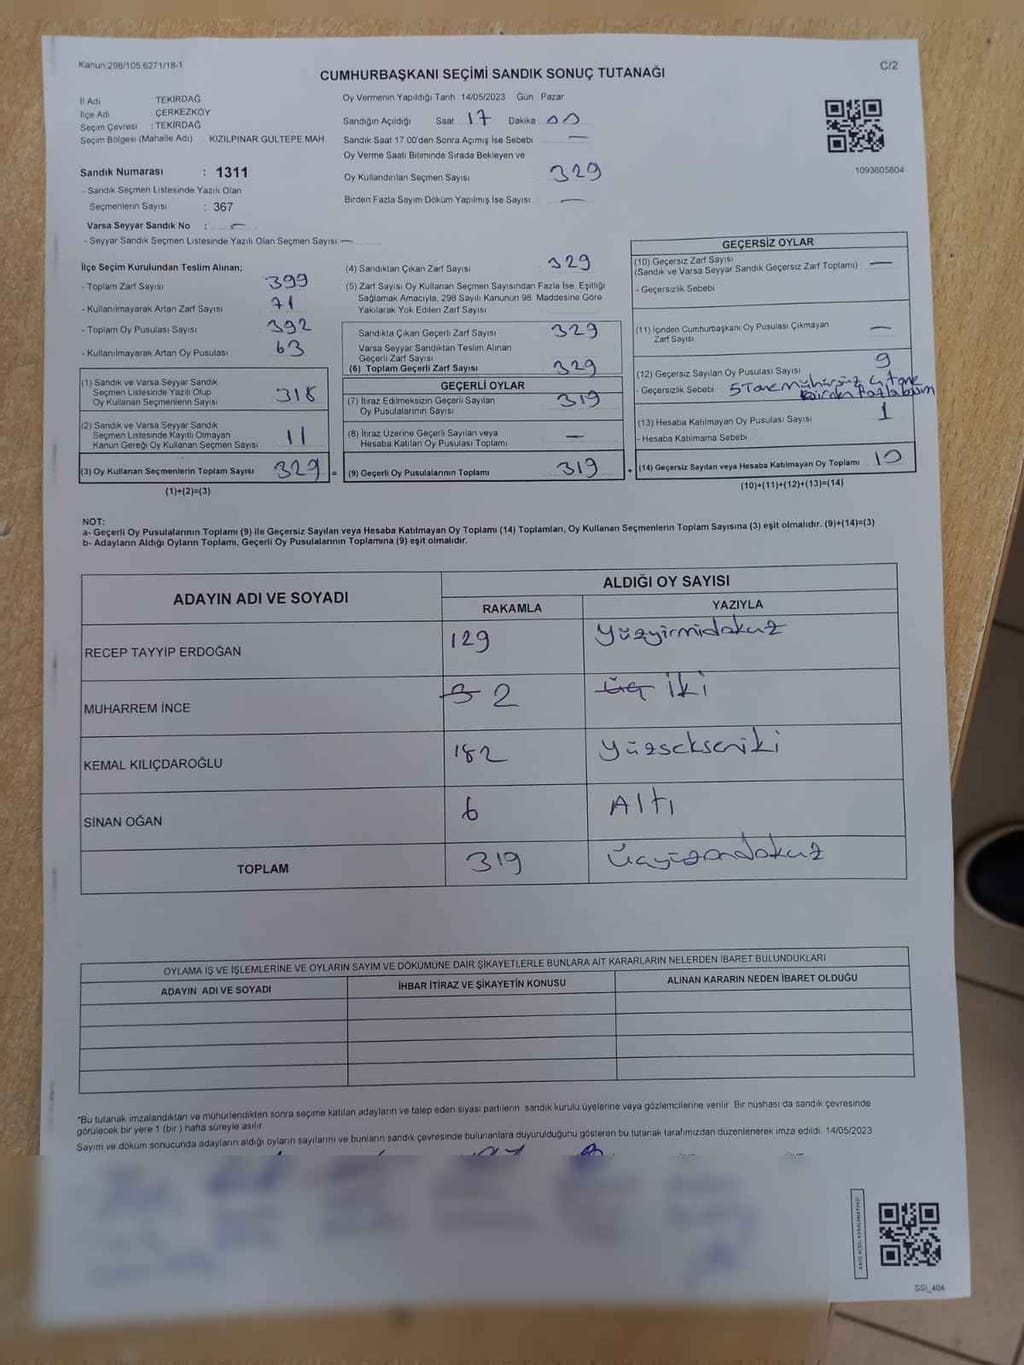 Kanun 298/105 6271/18-1
CUMHURBAŞKANI SEÇİMİ SANDIK SONUÇ TUTANAĞI
C/2
İl Adı TEKİRDAĞ
İlçe Adı ÇERKEZKÖY
Seçim Çevresi : TEKİRDAĞ
Seçim Bölgesi (Mahalle Adı) KIZILPINAR GÜLTEPE MAH.
Sandık Numarası : 1311
- Sandık Seçmen Listesinde Yazılı Olan
Seçmenlerin Sayısı : 367
Varsa Seyyar Sandık No : —
- Seyyar Sandık Seçmen Listesinde Yazılı Olan Seçmen Sayısı —
Oy Vermenin Yapıldığı Tarih 14/05/2023 Gün Pazar
Sandığın Açıldığı Saat 17 Dakika 00
Sandık Saat 17 00'den Sonra Açımış İse Sebebi —
Oy Verme Saati Bitiminde Sırada Bekleyen ve
Oy Kullandırılan Seçmen Sayısı 329
Birden Fazla Sayım Döküm Yapılmış İse Sayısı —
1093605604
İlçe Seçim Kurulundan Teslim Alınan;
- Toplam Zarf Sayısı 399
- Kullanılmayarak Artan Zarf Sayısı 71
- Toplam Oy Pusulası Sayısı 392
- Kullanılmayarak Artan Oy Pusulası 63
(1) Sandık ve Varsa Seyyar Sandık
Seçmen Listesinde Yazılı Olup
Oy Kullanan Seçmenlerin Sayısı 318
(2) Sandık ve Varsa Seyyar Sandık
Seçmen Listesinde Kayıtlı Olmayan
Kanun Gereği Oy Kullanan Seçmen Sayısı 11
(3) Oy Kullanan Seçmenlerin Toplam Sayısı 329 =
(1)+(2)=(3)
(4) Sandıktan Çıkan Zarf Sayısı 329
(5) Zarf Sayısı Oy Kullanan Seçmen Sayısından Fazla İse, Eşitliği
Sağlamak Amacıyla, 298 Sayılı Kanunun 98. Maddesine Göre
Yakılarak Yok Edilen Zarf Sayısı
Sandıkta Çıkan Geçerli Zarf Sayısı 329
Varsa Seyyar Sandıktan Teslim Alınan
Geçerli Zarf Sayısı
(6) Toplam Geçerli Zarf Sayısı 329
GEÇERLİ OYLAR
(7) İtiraz Edilmeksizin Geçerli Sayılan
Oy Pusulalarının Sayısı 319
(8) İtiraz Üzerine Geçerli Sayılan veya
Hesaba Katılan Oy Pusulası Toplamı —
(9) Geçerli Oy Pusulalarının Toplamı 319 +
GEÇERSİZ OYLAR
(10) Geçersiz Zarf Sayısı
(Sandık ve Varsa Seyyar Sandık Geçersiz Zarf Toplamı) —
- Geçersizlik Sebebi
(11) İçinden Cumhurbaşkanı Oy Pusulası Çıkmayan
Zarf Sayısı —
(12) Geçersiz Sayılan Oy Pusulası Sayısı 9
- Geçersizlik Sebebi 5 Tane mühürsüz 4 tane
birden fazla basım
(13) Hesaba Katılmayan Oy Pusulası Sayısı 1
- Hesaba Katılmama Sebebi
(14) Geçersiz Sayılan veya Hesaba Katılmayan Oy Toplamı 10
(10)+(11)+(12)+(13)=(14)
NOT:
a- Geçerli Oy Pusulalarının Toplamı (9) ile Geçersiz Sayılan veya Hesaba Katılmayan Oy Toplamı (14) Toplamları, Oy Kullanan Seçmenlerin Toplam Sayısına (3) eşit olmalıdır. (9)+(14)=(3)
b- Adayların Aldığı Oyların Toplamı, Geçerli Oy Pusulalarının Toplamına (9) eşit olmalıdır.
ADAYIN ADI VE SOYADI ALDIĞI OY SAYISI
RAKAMLA YAZIYLA
RECEP TAYYİP ERDOĞAN 129 Yüzyirmidokuz
MUHARREM İNCE 3 2 üç iki
KEMAL KILIÇDAROĞLU 182 Yüzsekseniki
SİNAN OĞAN 6 Altı
TOPLAM 319 Üçyüzondokuz
OYLAMA İŞ VE İŞLEMLERİNE VE OYLARIN SAYIM VE DÖKÜMÜNE DAİR ŞİKAYETLERLE BUNLARA AİT KARARLARIN NELERDEN İBARET BULUNDUKLARI
ADAYIN ADI VE SOYADI İHBAR İTİRAZ VE ŞİKAYETİN KONUSU ALINAN KARARIN NEDEN İBARET OLDUĞU
*Bu tutanak imzalandıktan ve mühürlendikten sonra seçime katılan adayların ve talep eden siyasi partilerin sandık kurulu üyelerine veya gözlemcilerine verilir. Bir nüshası da sandık çevresinde
görülecek bir yere 1 (bir) hafta süreyle asılır.
Sayım ve döküm sonucunda adayların aldığı oyların sayılarını ve bunların sandık çevresinde bulunanlara duyurulduğunu gösteren bu tutanak tarafımızdan düzenlenerek imza edildi. 14/05/2023
SSI_404